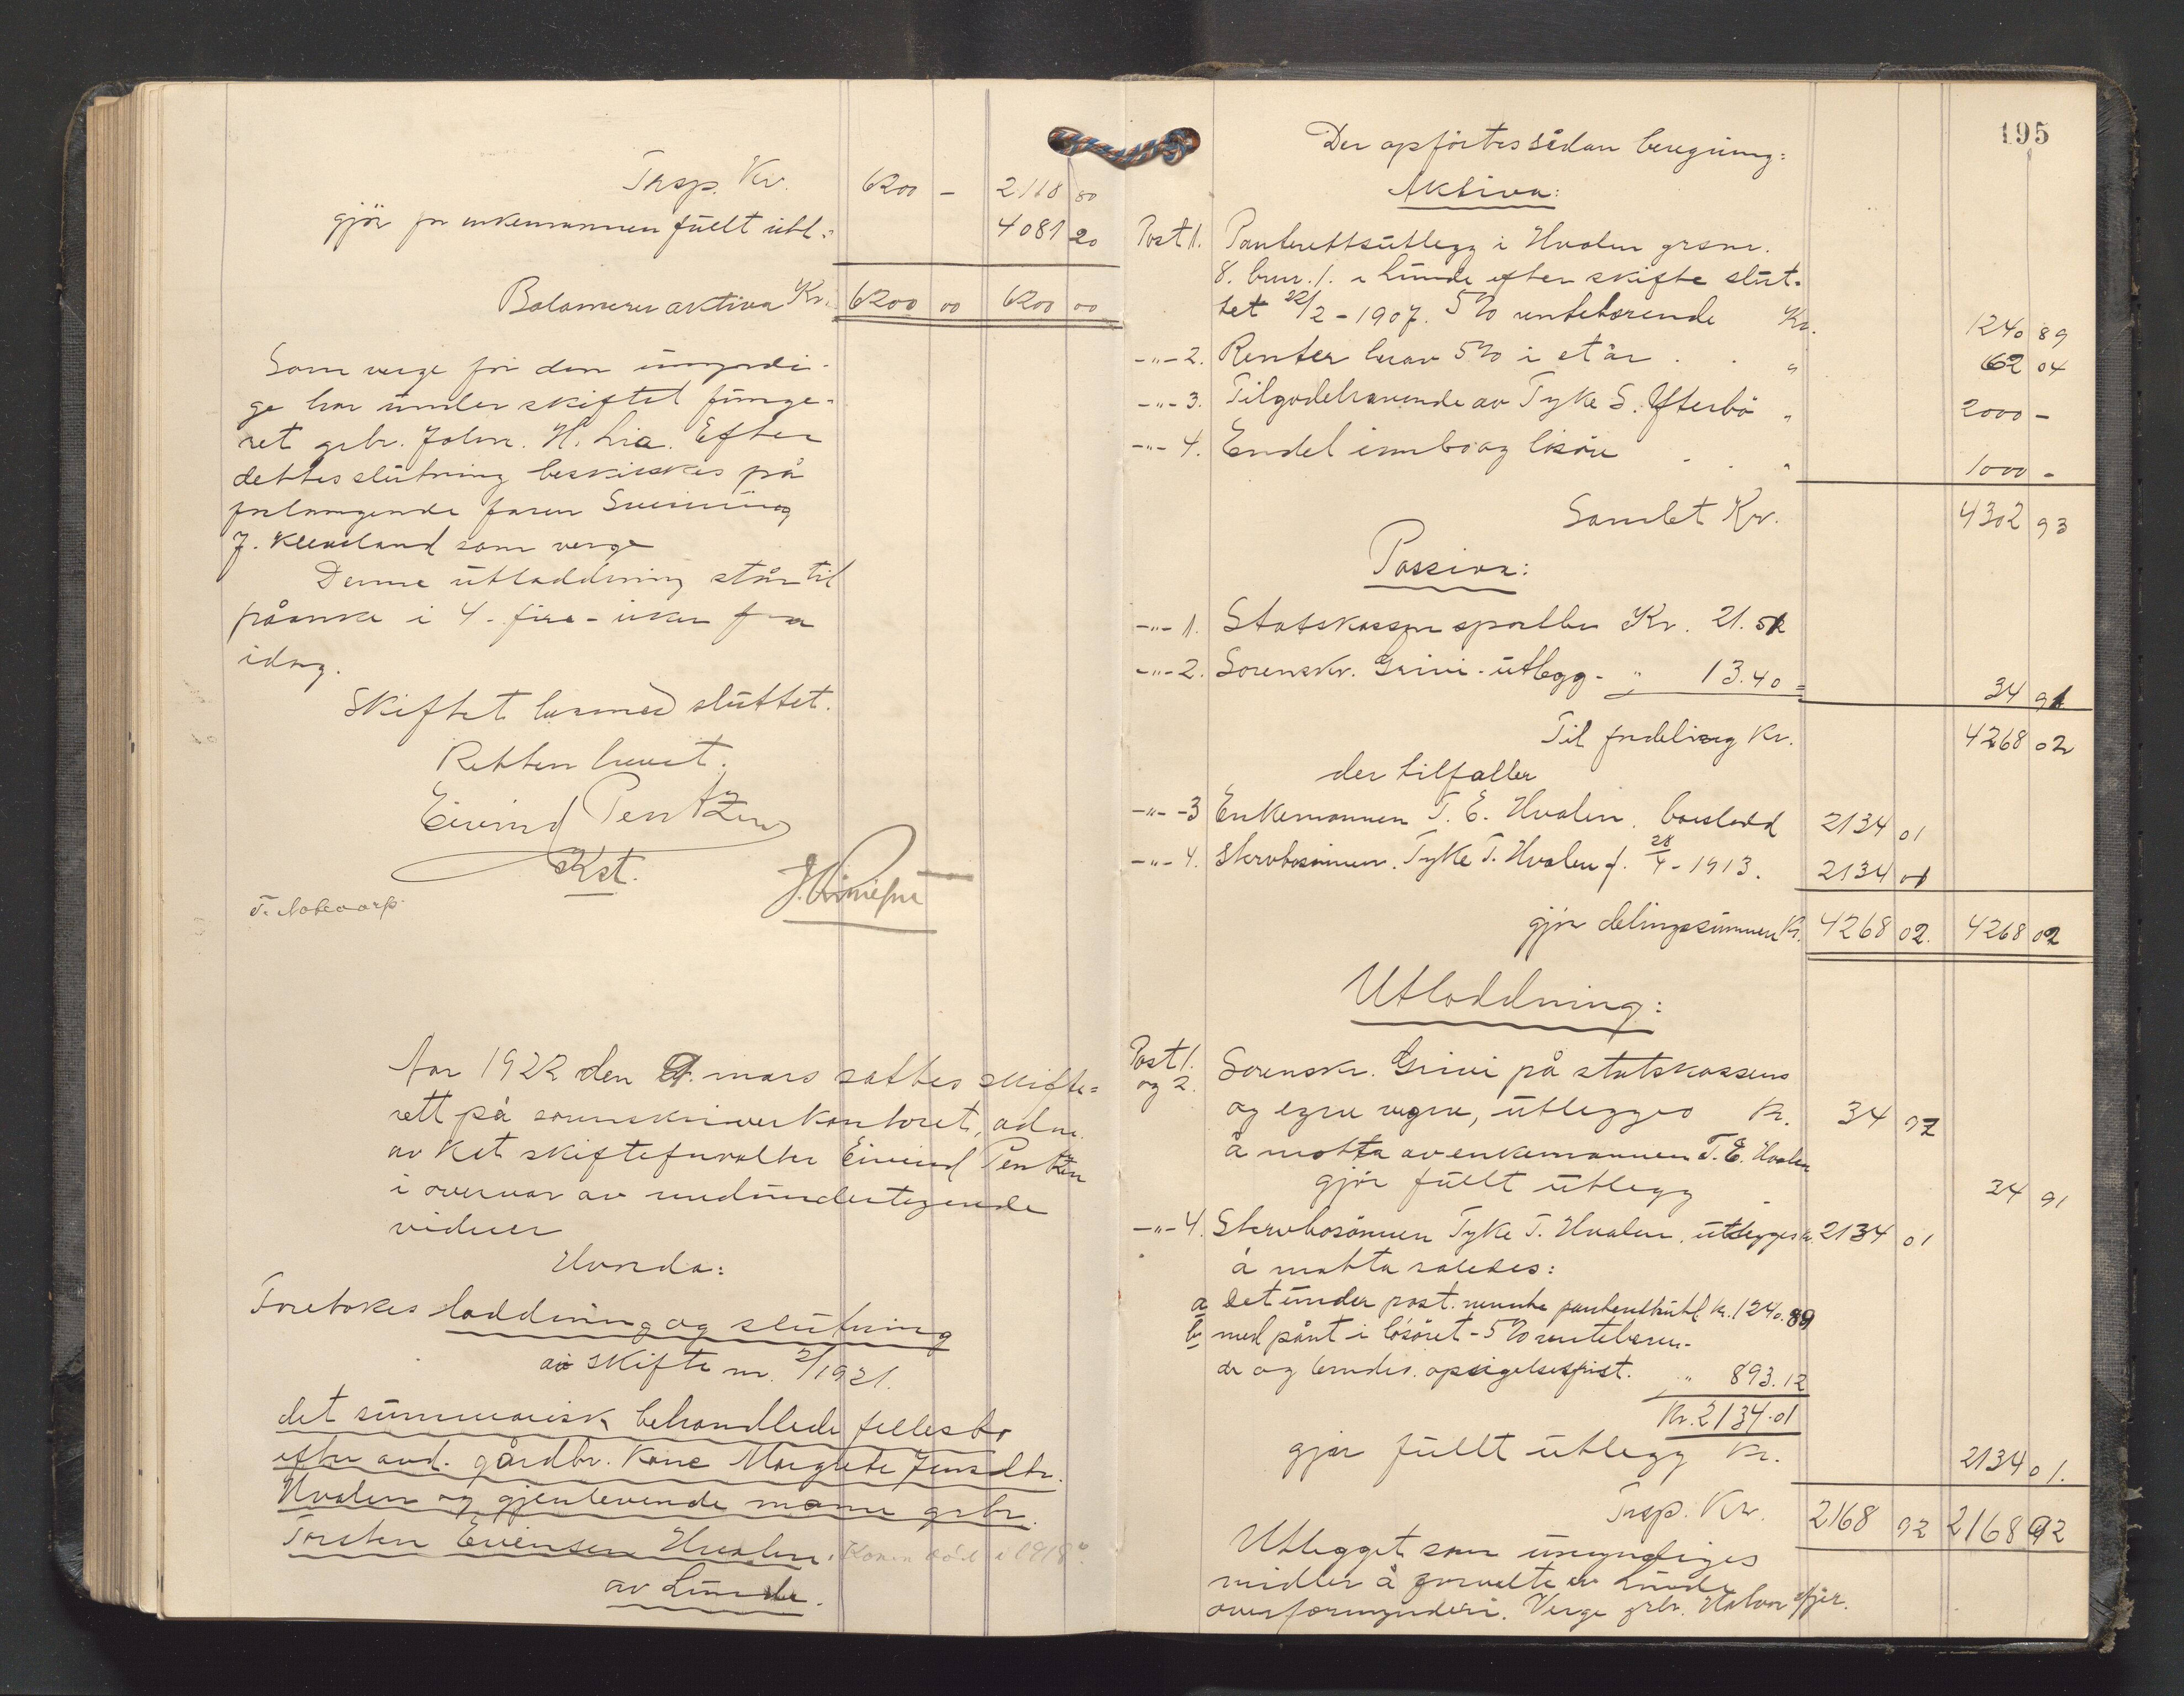 Trsp. Kr. 6200 - 2118 80
gjör for enkemannen fullt utl: 4081 20
Balanserer aktiva Kr. 6200 00 6200 00
Som verge for den umyndi-
ge har under skiftet funge-
ret grbr. John. H. Lia. Efter
dettes slutning beskikkes på
forlangende faren Sveinung
J. Kleveland som verge
Denne utloddning står til
påanke i 4 - fire - uker fra
idag.
Skiftet hermed sluttet.
Retten hevet.
Eivind Pentzen
Kst.
Aar 1922 den 9. mars sattes skifte-
rett på sorenskriverkontoret, adm.
av Kst skifteforvalter Eivind Pentzen
i overvær av medundertegnede
vidner
Hvorda:
Foretokes loddning og slutning
av skifte nr. 2/1921.
det summarisk behandlede fellesbo
efter avd. gårdbr. Kone Margrete Jensdtr.
Hvalen og gjenlevende mann grbr.
Torsten Evensen Hvalen. Konen död i 1918.
av Lunde.
195
Der opförtes sådan beregning:
Aktiva:
Post 1. Panterettsutlegg i Hvalen grsnr.
8. brnr. 1. i Lunde efter skifte slut-
tet 22/2 - 1907. 5% rentebærende Kr. 1240 89
-"- 2. Renter herav 5% i et år . . " 62 04
-"- 3. Tilgodehavende av Tyke S. Ytterbö " 2000 -
-"- 4. Endel innbo og lösöre . . " 1000 -
Samlet Kr. 4302 93
Passiva:
-"- 1. Statskassen sportler Kr. 21.51
-"- 2. Sorenskr. Grivi - utlegg - " 13.40 = 34 91
Til fordeling Kr. 4268 02
der tilfaller
-"- 3 Enkemannen T. E. Hvalen. boeslodd 2134 01
-"- 4. Stervbosönnen. Tyke T. Hvalen f. 28/4 - 1913. 2134 01
gjör delingssummen Kr. 4268 02. 4268 02
Utloddning:
Post 1. og 2. Sorenskr. Grivi på statskassens
og egne vegne, utlegges Kr. 34 92
å motta av enkemannen T. E. Hvalen
gjör fullt utlegg - 34 91
-"- 4. Stervbosönnen Tyke T. Hvalen. utlegges kr. 2134 01
å motta således:
a Det under post. nevnte panterettsutl. Kr. 1240.89
b med pant i lösöret - 5% rentebæren-
de og 6 mdrs. opsigelsesfrist. " 893.12
Kr. 2134.01
gjør fullt utlegg Kr. 2134 01.
Trsp. Kr. 2168 92 2168 92
Utlegget som umyndiges
midler å forvalte av Lunde
overformynderi. Verge grbr. Halvor